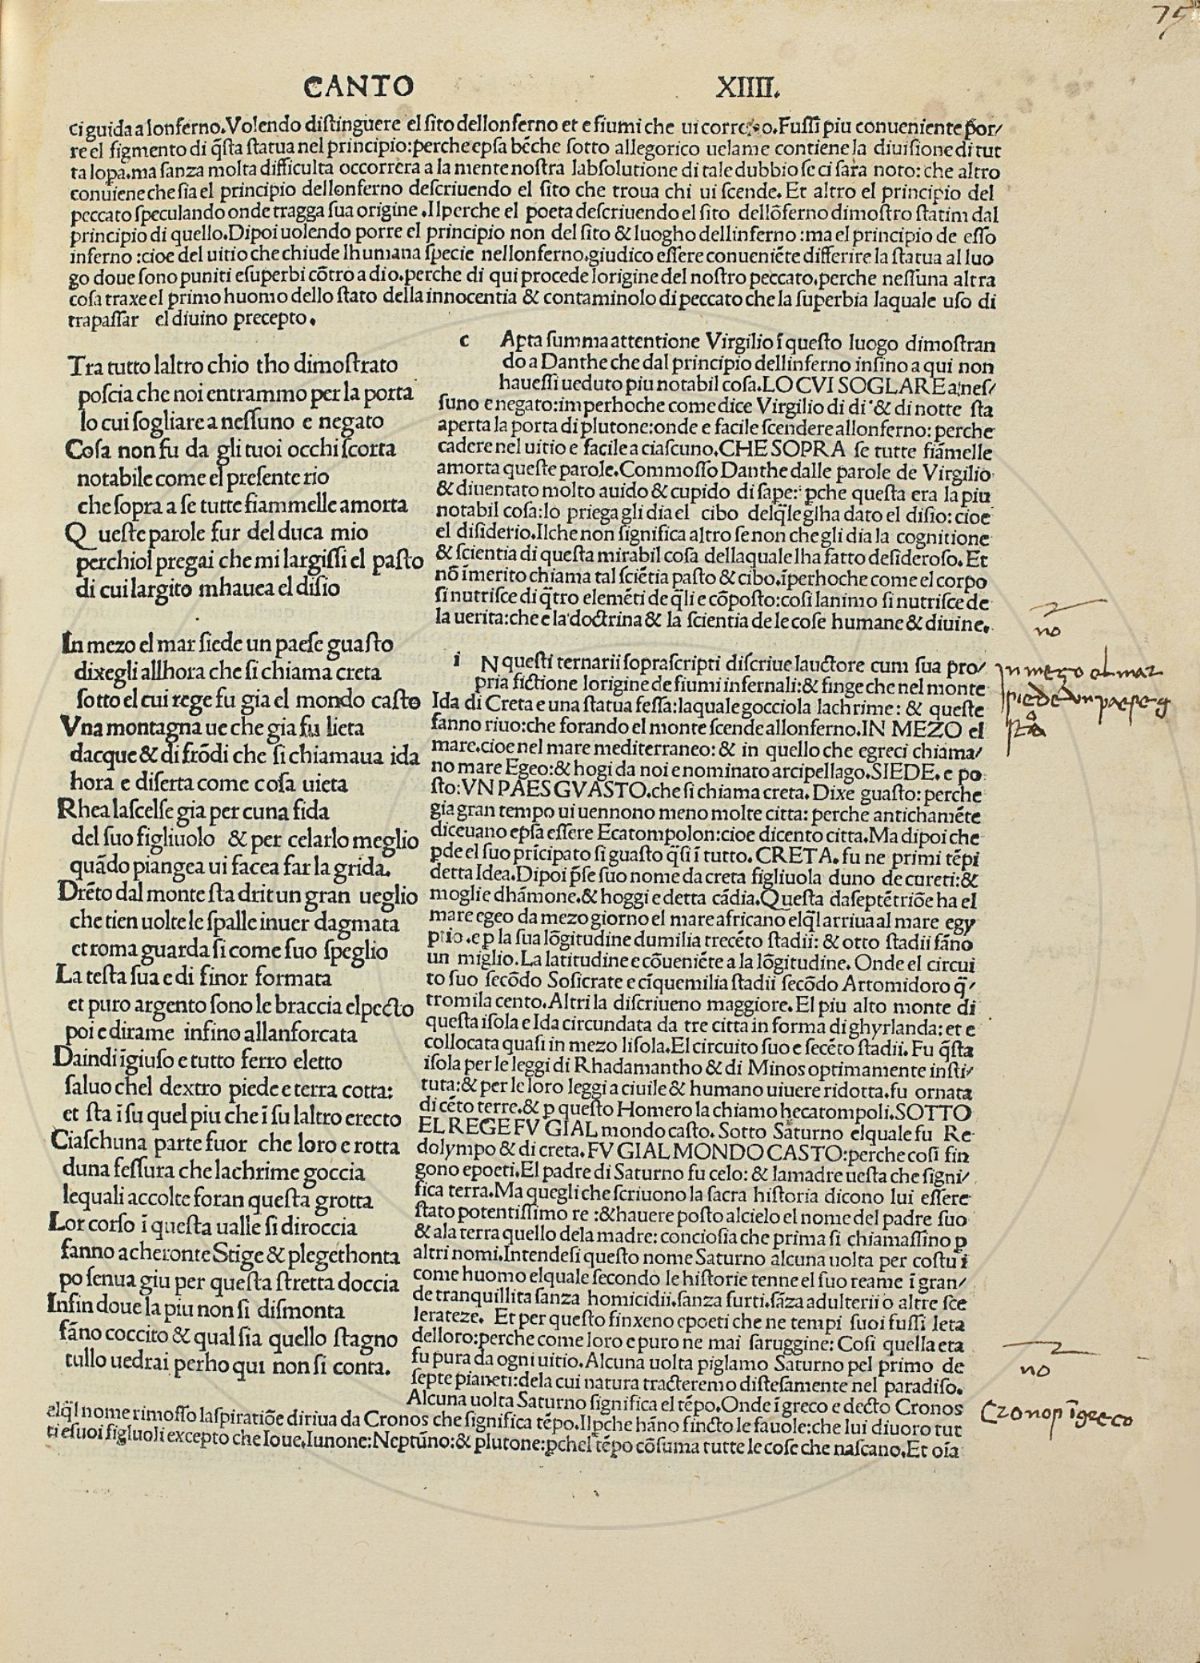 75
CANTO XIIII.
ci guida a lonferno.Volendo distinguere el sito dellonferno et e fiumi che ui corrono.Fussi piu conueniente por/
re el figmento di q̃sta statua nel principio:perche epsa bẽche sotto allegorico uelame contiene la diuisione di tut
ta lopa.ma sanza molta difficulta occorrera a la mente nostra labsolutione di tale dubbio se ci sara noto: che altro
conuiene che sia el principio dellonferno descriuendo el sito che troua chi ui scende. Et altro el principio del
peccato speculando onde tragga sua origine .Ilperche el poeta descriuendo el sito dellõferno dimostro statim dal
principio di quello.Dipoi uolendo porre el principio non del sito & luogho dellinferno :ma el principio de esso
inferno :cioe del uitio che chiude lhumana specie nellonferno.giudico essere conueniẽte differire la statua al luo
go doue sono puniti esuperbi cõtro a dio.perche di qui procede lorigine del nostro peccato.perche nessuna altra
cosa traxe el primo huomo dello stato della innocentia & contaminolo di peccato che la superbia laquale uso di
trapassar el diuino precepto.
Tra tutto laltro chio tho dimostrato
poscia che noi entrammo per la porta
lo cui sogliare a nessuno e negato
Cosa non fu da gli tuoi occhi scorta
notabile come el presente rio
che sopra a se tutte fiammelle amorta
Queste parole fur del duca mio
perchiol pregai che mi largissi el pasto
di cui largito mhauea el disio
In mezo el mar siede un paese guasto
dixegli allhora che si chiama creta
sotto el cui rege fu gia el mondo casto
Vna montagna ue che gia fu lieta
dacque & di frõdi che si chiamaua ida
hora e diserta come cosa uieta
Rhea lascelse gia per cuna fida
del suo figliuolo & per celarlo meglio
quãdo piangea ui facea far la grida.
Drẽto dal monte sta drit un gran ueglio
che tien uolte le spalle inuer dagmata
et roma guarda si come suo speglio
La testa sua e di finor formata
et puro argento sono le braccia elpecto
poi e dirame infino allanforcata
Daindi ĩgiuso e tutto ferro eletto
saluo chel dextro piede e terra cotta:
et sta ĩ su quel piu che ĩ su laltro erecto
Ciaschuna parte fuor che loro e rotta
duna fessura che lachrime goccia
lequali accolte foran questa grotta
Lor corso ĩ questa ualle si diroccia
fanno acheronte Stige & plegethonta
po senua giu per questa stretta doccia
Infin doue la piu non si dismonta
fãno coccito & qual sia quello stagno
tullo uedrai perho qui non si conta.
c Apta summa attentione Virgilio ĩ questo luogo dimostran
do a Danthe che dal principio dellinferno insino a qui non
hauessi ueduto piu notabil cosa.LO CVI SOGLARE a nes/
suno e negato:imperhoche come dice Virgilio di di & di notte sta
aperta la porta di plutone:onde e facile scendere allonferno: perche
cadere nel uitio e facile a ciascuno.CHE SOPRA se tutte fiãmelle
amorta queste parole.Commosso Danthe dalle parole de Virgilio
& diuentato molto auido & cupido di sape: pche questa era la piu
notabil cosa:lo priega gli dia el cibo delq̃le glha dato el disio: cioe
el disiderio.Ilche non significa altro se non che gli dia la cognitione
& scientia di questa mirabil cosa dellaquale lha fatto desideroso. Et
nõ ĩmerito chiama tal sciẽtia pasto & cibo.ĩperhoche come el corpo
si nutrisce di q̃tro elemẽti de q̃li e cõposto:cosi lanimo si nutrisce de
la uerita:che e la doctrina & la scientia de le cose humane & diuine.
i N questi ternarii soprascripti discriue lauctore cum sua pro/
pria fictione lorigine de fiumi infernali:& finge che nel monte
Ida di Creta e una statua fessa:laquale gocciola lachrime: & queste
fanno riuo:che forando el monte scende allonferno.IN MEZO el
mare.cioe nel mare mediterraneo: & in quello che egreci chiama/
no mare Egeo:& hogi da noi e nominato arcipellago.SIEDE. e po
sto:VN PAES GVASTO.che si chiama creta. Dixe guasto: perche
gia gran tempo ui uennono meno molte citta: perche antichamẽte
diceuano epsa essere Ecatompolon:cioe dicento citta.Ma dipoi che
pde el suo prĩcipato si guasto q̃si ĩ tutto. CRETA. fu ne primi tẽpi
detta Idea.Dipoi pse suo nome da creta figliuola duno de cureti:&
moglie dhãmone.& hoggi e detta cãdia.Questa daseptẽtriõe ha el
mare egeo da mezo giorno el mare africano elq̃l arriua al mare egy
ptio.e p la sua lõgitudine dumilia trecẽto stadii: & otto stadii fãno
un miglio.La latitudine e cõueniẽte a la lõgitudine. Onde el circui
to suo secõdo Sosicrate e cĩquemilia stadii secõdo Artomidoro q̃/
tromila cento.Altri la discriueno maggiore.El piu alto monte di
questa isola e Ida circundata da tre citta in forma di ghyrlanda: et e
collocata quasi in mezo lisola.El circuito suo e secẽto stadii. Fu q̃sta
isola per le leggi di Rhadamantho & di Minos optimamente insti/
tuta:& per le loro leggi a ciuile & humano uiuere ridotta.fu ornata
di cẽto terre.& p questo Homero la chiamo hecatompoli.SOTTO
EL REGE FV GIAL mondo casto. Sotto Saturno elquale fu Re
dolympo & di creta.FV GIAL MONDO CASTO:perche cosi fin
gono epoeti.El padre di Saturno fu celo: & lamadre uesta che signi/
fica terra.Ma quegli che scriuono la sacra historia dicono lui essere
stato potentissimo re :& hauere posto alcielo el nome del padre suo
& ala terra quello dela madre: conciosia che prima si chiamassino p
altri nomi.Intendesi questo nome Saturno alcuna uolta per costui
come huomo elquale secondo le historie tenne el suo reame ĩ gran/
de tranquillita sanza homicidii.sanza furti.sãza adulterii o altre sce
lerateze. Et per questo finxeno epoeti che ne tempi suoi fussi leta
delloro:perche come loro e puro ne mai saruggine: Cosi quella eta
fu pura da ogni uitio.Alcuna uolta piglamo Saturno pel primo de
septe pianeti:dela cui natura tracteremo distesamente nel paradiso.
Alcuna uolta Saturno significa el tẽpo. Onde ĩ greco e decto Cronos
elq̃l nome rimosso laspiratiõe diriua da Cronos che significa tẽpo.Ilpche hãno fincto le fauole:che lui diuoro tut
ti esuoi figluoli excepto che Ioue.Iunone:Neptũno:& plutone:pchel tẽpo cõsuma tutte le cose che nascano.Et oĩa
no
In mezo el mar
siede un paese g
no
Cronos ĩ greco